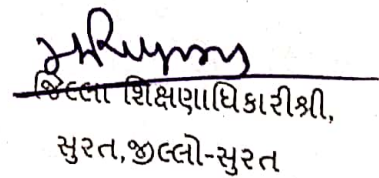 જિલ્લા શિક્ષણાધિકારીશ્રી,
સુરત,જીલ્લો-સુરત